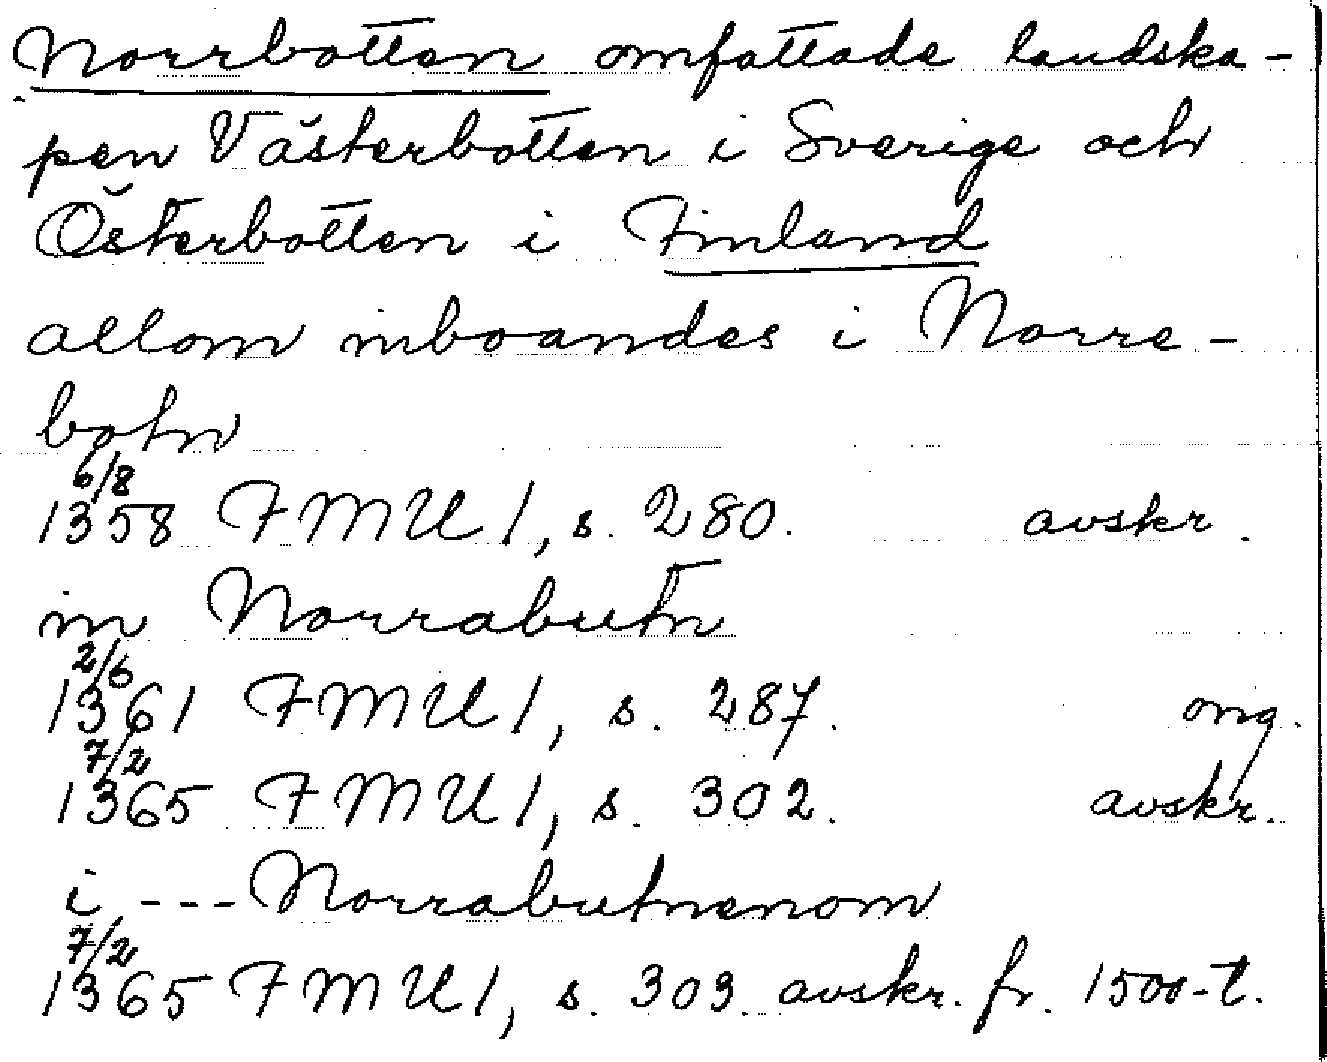 Norrbotten omfattade landska-
pen Västerbotten i Sverige och
Österbotten i Finland
allom inboandes i Norre-
botn
6/8
1358 FMU 1, s. 280. avskr.
in Norrabutn
2/6
1361 FMU 1, s. 287. orig.
7/2
1365 FMU 1, s. 302. avskr.
i --- Norrabutnenom
7/2
1365 FMU 1, s. 303 avskr. fr. 1500-t.